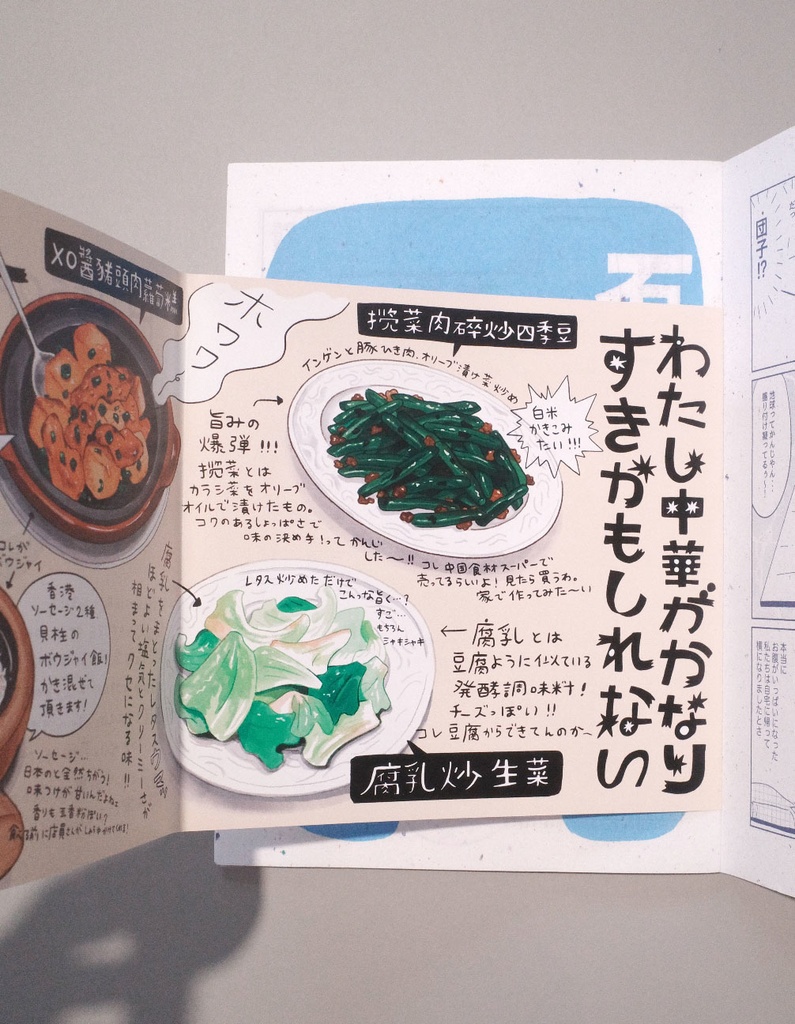 わたし中華がかなり
すきかもしれない
石
XO醬豬頭肉蘿蔔糕
ホワワ
欖菜肉碎炒四季豆
インゲンと豚ひき肉、オリーブ漬け菜炒め
白米
かきこみ
たい!!!
旨みの
爆弾!!!
欖菜とは
カラシ菜をオリーブ
オイルで漬けたもの。
コクのあるしょっぱさで
味の決め手!ってかんじ
した〜!!
コレ中国食材スーパーで
売ってるらしいよ!見たら買うわ。
家で作ってみた〜い
レタス炒めただけで
こんな旨く…?
すご…
もちろん
シャキシャキ
腐乳をまとったレタス
ほどよい塩気とクリーミーさが
相まってクセになる味!!
←腐乳とは
豆腐ように似ている
発酵調味料!
チーズっぽい!!
コレ豆腐からできてんのか〜
腐乳炒生菜
コレが
ボウジャイ
香港
ソーセージ2種
貝柱の
ボウジャイ飯!
かき混ぜて
頂きます!
ソーセージ…
日本のと全然ちがう!
味つけが甘いんだよねぇ
香りも五香粉ぽい?
団子!?
地球ってかんじゃん…
盛り付け凝ってるぅ〜!
本当に
お腹がいっぱいになった
私たちは自宅に帰って
横になりましたとさ